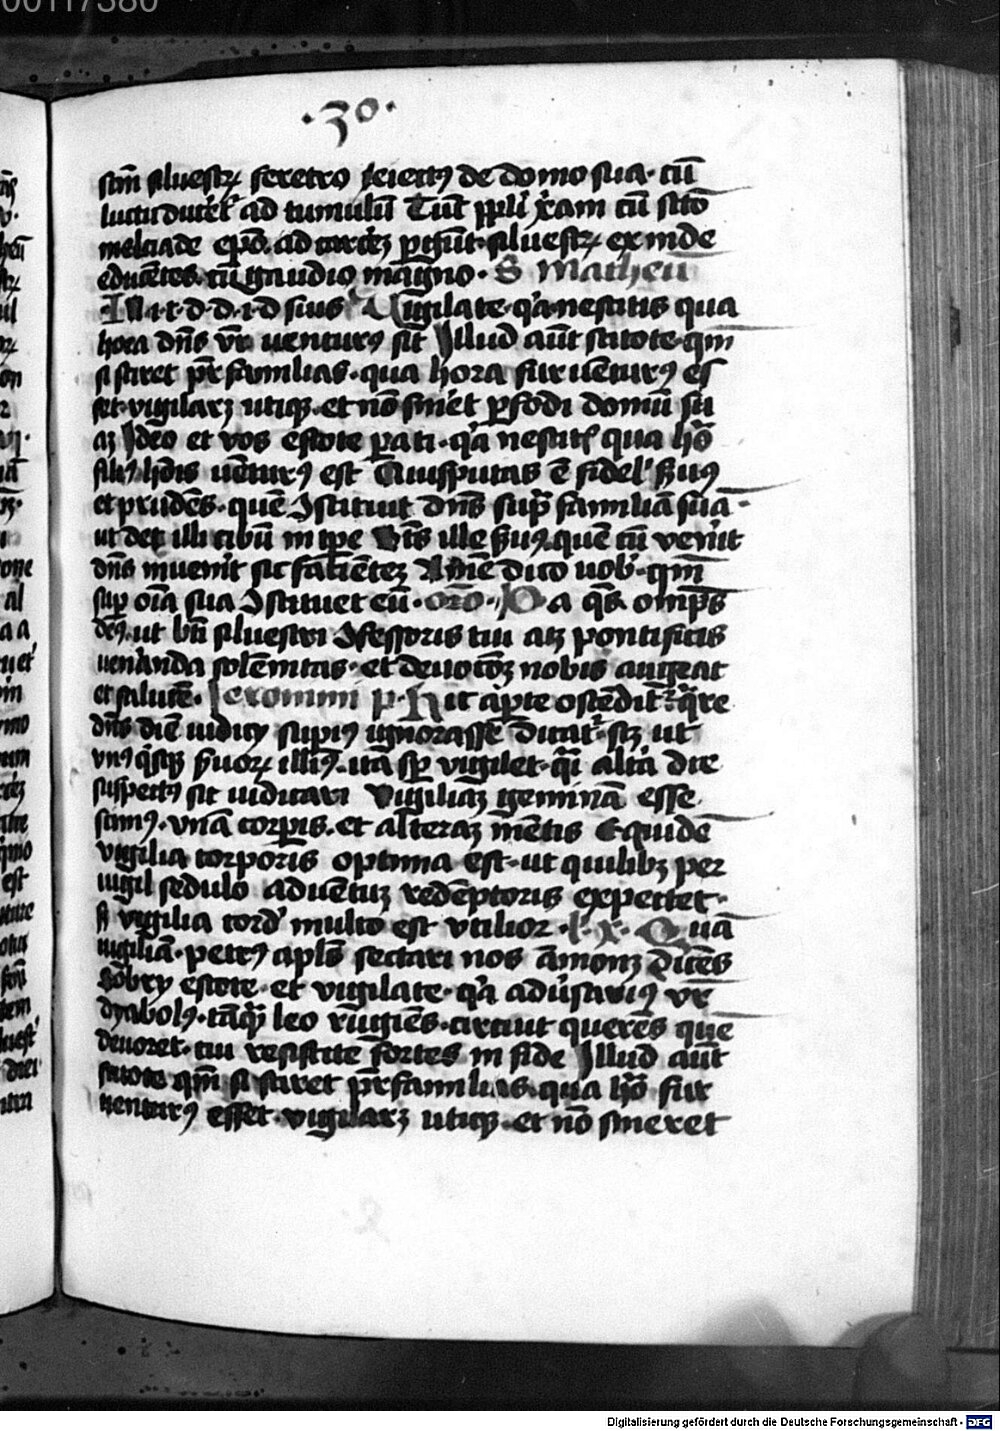 00117380
·30·
scm̄ siluestꝝ feretro ieiectꝰ de domo sua· cū
luctu ad tumulū Tūc ppli xp̄iam cū scō
melciade ep̄o· ad siluestꝝ exinde
educētes· cū gaudio māgno· S Matheū
In·i·t·d·d·i·d suis Vigilate· qa nescitis qua
hora dn̄s vr̄ venturꝰ sit Illud aūt scitote· qm̄
si sciret pr̄familias· qua hora fur uēturꝰ es
set· vigilarꝫ utiqꝫ· et nō sin̄et ꝑfodi domū su
aꝫ Ideo et vos estote parati· qa nescitꝭ qua ho
filiꝰ hoīs uēturꝰ est Quisputas ē fidelꝭ s̄uꝰ
et prudēs· quē ɔstituit dn̄s supͣ familiā suā·
ut det illi cibū in tpe Bt̄s ille s̄uꝰ· quē cū ven̄it
dn̄s inuen̄it sic faciēteꝫ Amē dico uob· qm̄
sup oīa sua ɔstituet eū· oro· Da qs̄· omps̄
deꝰ· ut bt̄i siluestri ɔfessoris tui atqꝫ pontificis
uen̄anda solēnitas· et deuotōeꝫ nobis augeat
et salutē· Ieronimi p· Hic apte ostēdit· qͣre
dn̄s diē iudicij supiꝰ ignorasse dicat· scꝫ ut
vnꝰ qͥsqꝫ s̄uoꝝ illiꝰ· ita sp̄ vigilet· qͣi alia die
suspectꝰ sit iudicari Vigiliaꝫ geminā esse
scimꝰ· vnā corpis· et alteraꝫ mētis Et quidē
vigilia corporis optima est· ut quilibꝫ per
uigil sedulo aduētuꝫ redēptoris expectet·
sꝫ vigilia cordꝭ multo est vtilior· l· x· Quā
uigiliā· petrꝰ apl̄s sectari nos āmonꝫ dicēs
Sobrij estote· et vigilate· qa adūsariꝰ vr̄
dyabolꝰ· tāqͣ leo rugiēs· circuit querēs que
deuoret· cui resistite fortes in fide Illud aūt
scitote qm̄ si sciret pr̄familias· qua ho fur
uenturꝰ esset· vigilarꝫ utiqꝫ· et nō sineret
Digitalisierung gefördert durch die Deutsche Forschungsgemeinschaft - DFG